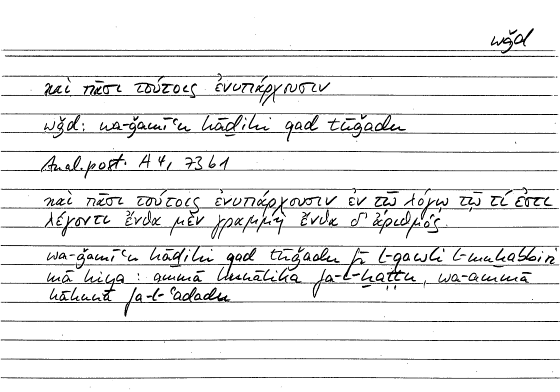 wǧd
καὶ πᾶσι τούτοις ἐνυπάρχουσιν
wǧd: wa-ǧamīʿu hāḏihi qad tūǧadu
Anal. post. A 4, 73 b 1
καὶ πᾶσι τούτοις ἐνυπάρχουσιν ἐν τῷ λόγῳ τῷ τί ἐστι
λέγοντι ἔνθα μὲν γραμμὴ ἔνθα δ' ἀριθμός.
wa-ǧamīʿu hāḏihi qad tūǧadu fī l-qawli l-muḫabbiri
mā hiya : ammā hunālika fa-l-ḫaṭṭu, wa-ammā
hāhunā fa-l-ʿadadu